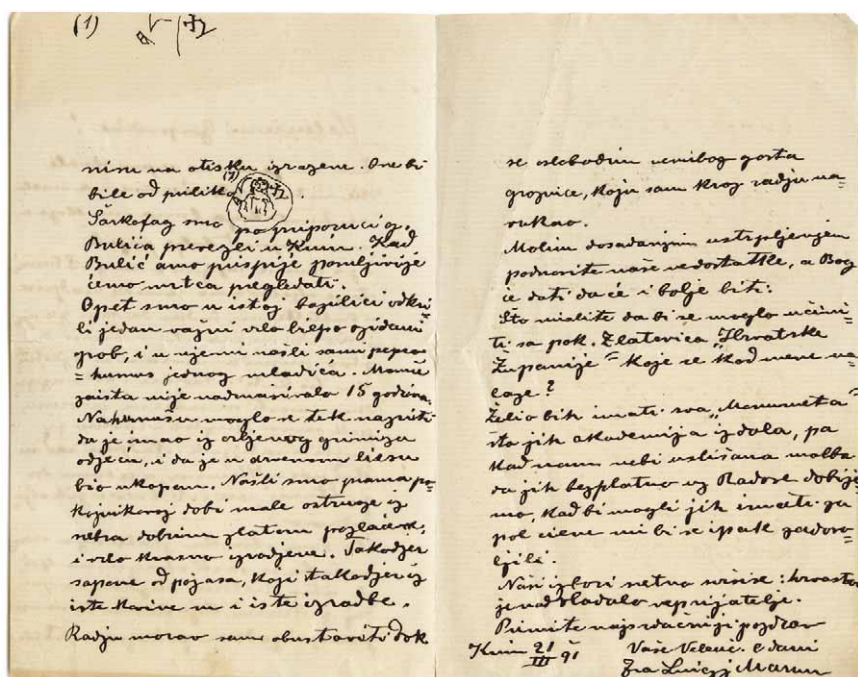 (1)
nisu na otisku izražene. One bi
bile od prilike
(1)
Sarkofag smo po preporuci g.
Bulića prevezli u Knin. Kad
Bulić amo prispije pomljivije
ćemo mrtca pregledati.
Opet smo u istoj bazilici odkri-
li jedan važni vrlo liepo ozidani
grob, i u njemu našli sami pepeo
= humus jednog mladića. Momić
zaista nije nadmašivalo 15 godina.
Na humusu moglo se tek nazrieti
da je imao iz crljenog grimiza
odjeću, i da je u drvenom liesu
bio ukopan. Našli smo prama po-
kojnikovoj dobi male ostruge iz
srebra dobrim zlatom pozlaćene,
i vrlo krasno izradjene. Takodjer
sapone od pojasa, koji takodjer iz
iste kovine su i iste izradbe.
Radju morao sam obustaviti dok
se oslobodim nemilog gosta
groznice, koju sam kroz radju na-
vukao.
Molim dosadanjim ustrpljenjem
podnosite naše nedostatke, a Bog
će dati da će i bolje biti.
Što mislite da bi se moglo učini-
ti sa pok. Zlatovića "Hrvatske
Županije" koje se kod mene na-
laze?
Želio bih imati sva "Monumenta"
što jih akademija izdala, pa
kad nam nebi uslišana molba
da jih bezplatno uz Radove dobije-
mo, kad bi mogli jih imati za
pol ciene mi bi se ipak zadovo-
ljili.
Naši izbori sretno svršiše: hrvastvo
je nadvladalo neprijatelje.
Primite najsrdačniji pozdrav
Knin 21/III 91
Vaše Velenc. odani
Fra Luigj Marun